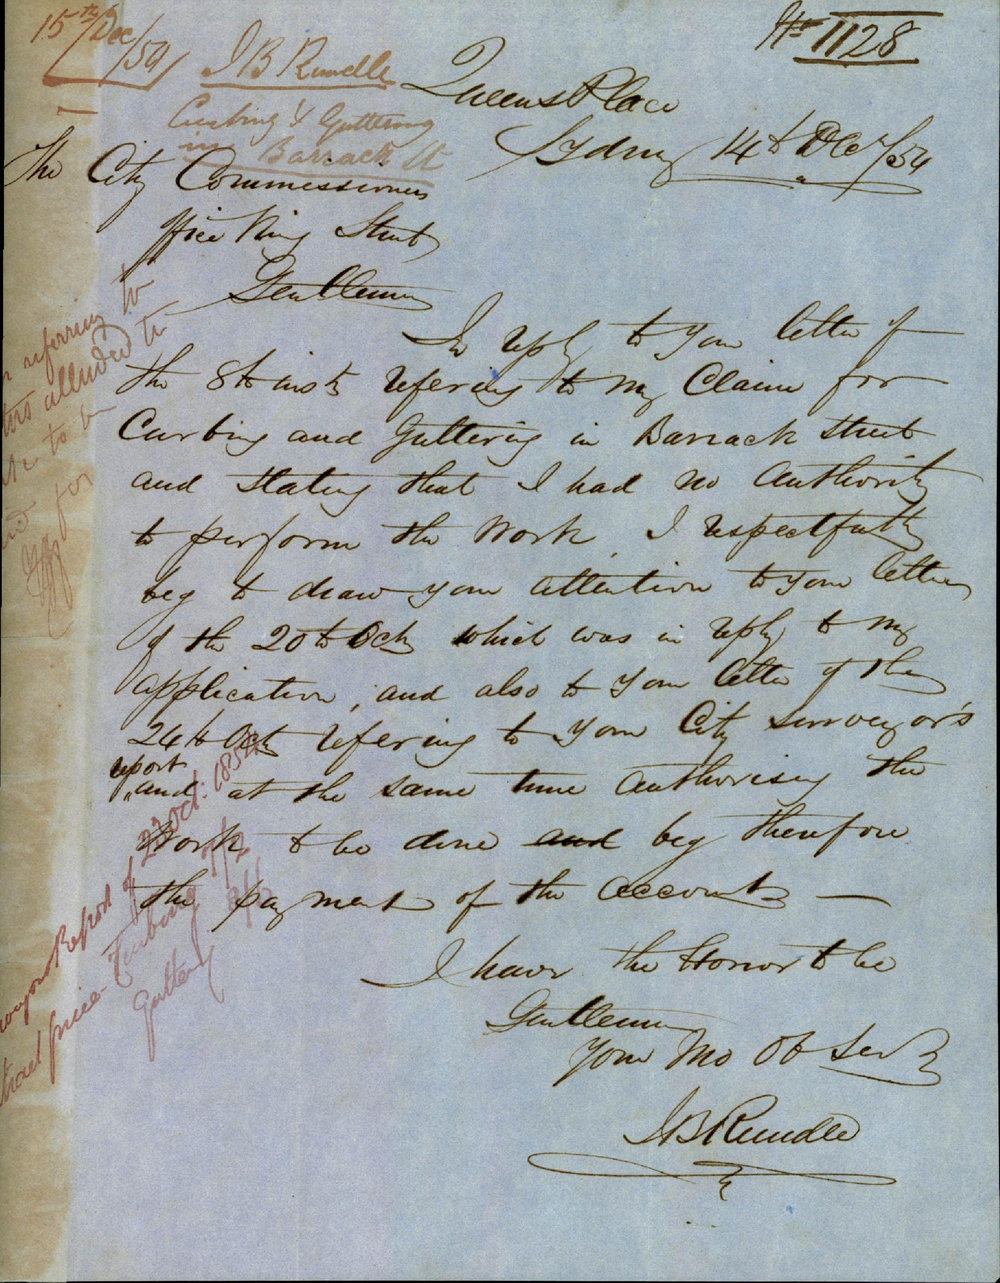 15th/Dec/54
No 1128
J B Rundle
Curbing & Guttering
in Barrack St
Queens Place
Sydney 14th Dec/54
The City Commissioners
Office King Street
Gentlemen
In reply to your letter of
the 8th inst refering to my Claim for
Curbing and Guttering in Barrack Street
and stating that I had no authority
to perform the Work, I respectfully
beg to draw your attention to your letter
of the 20th Oct which was in reply to my
application, and also to your letter of the
24th Oct refering to your City Surveyor's
report
and at the same time authorising the
Work to be done and beg therefore
the payment of the account —
I have the Honor to be
Gentlemen
Your Mo Ob Serv
J B Rundle
referring to
alluded to
to be
for
Report of 23 Oct: 1854
price - Curbing
Guttering